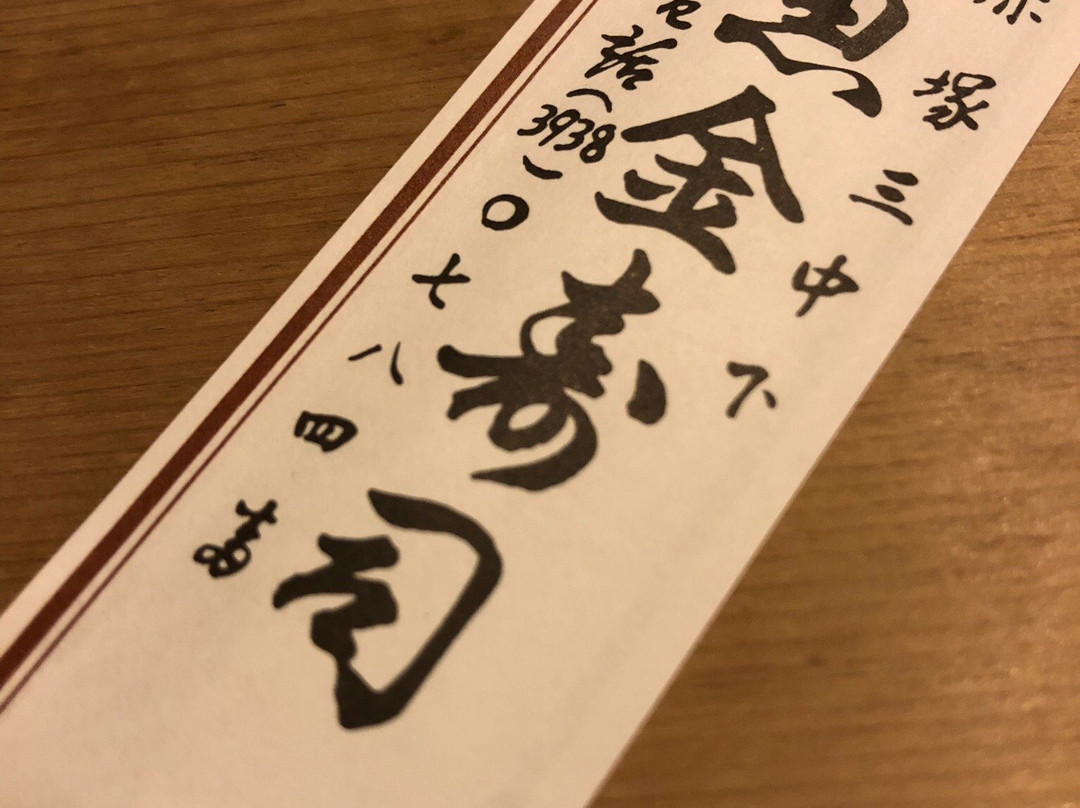 塚三中下
金寿司
電話(3938)〇七八四番